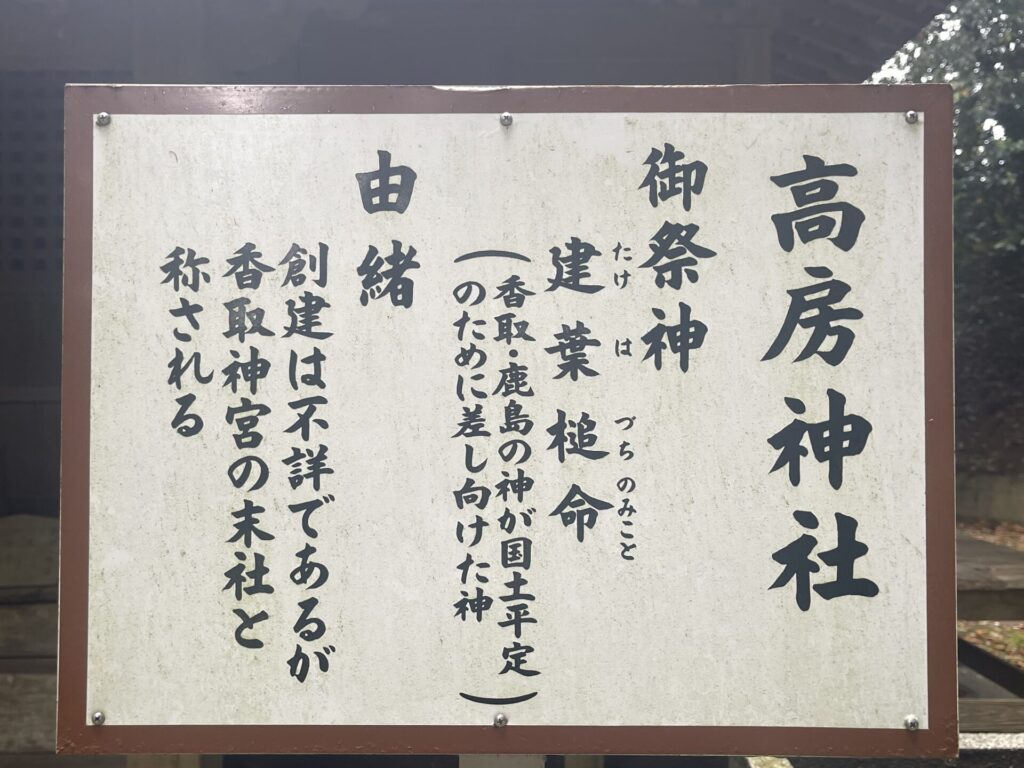 高房神社
御祭神
たけ は づちのみこと
建葉槌命
(香取・鹿島の神が国土平定
のために差し向けた神)
由緒
創建は不詳であるが
香取神宮の末社と
称される